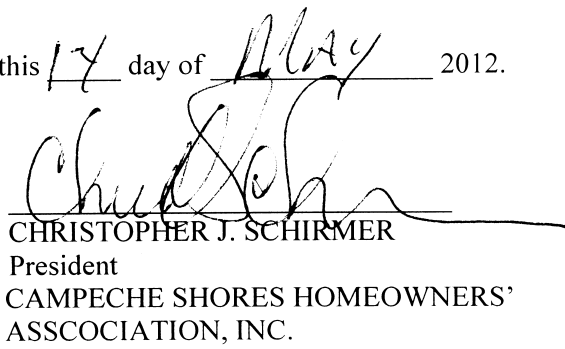 this 14 day of MAY 2012.
CHRISTOPHER J. SCHIRMER
President
CAMPECHE SHORES HOMEOWNERS’
ASSCOCIATION, INC.